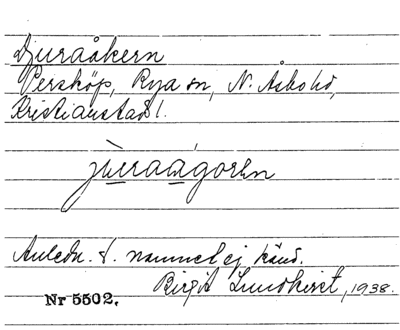 Djuraåkern
Persköp, Rya sn, N. Åsbo hd,
Kristianstads l.
Anledn. t. namnet ej känd.
Birgit Lundkvist, 1938.
Nr 5502.